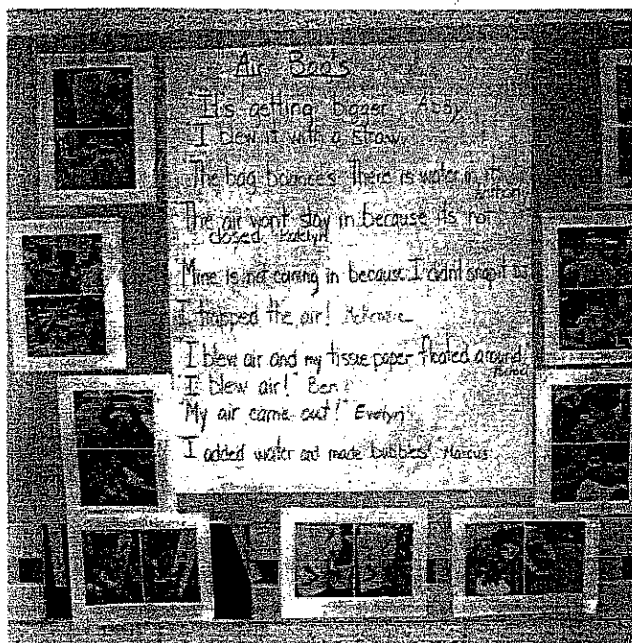 Air Bags
"It's getting bigger" Abby
I blew it with a straw.
The bag bounces. There is water in it."
The air won't stay in because its not
closed. Katelyn
Mine is not coming in because I didn't snap it
I trapped the air!
"I blew air and my tissue paper floated around."
I blew air!" Ben
"My air came out!" Evelyn
"I added water and made bubbles" Marcus